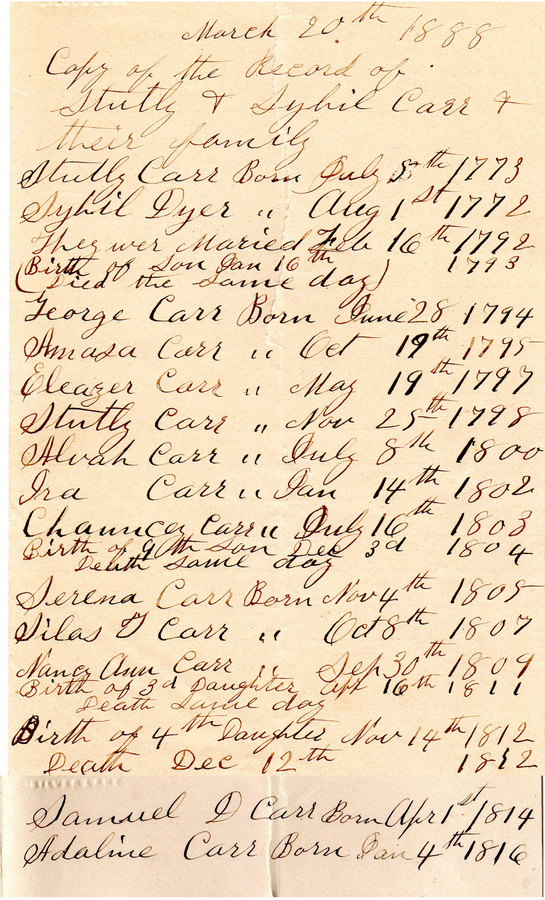 March 20th 1888
Copy of the Record of
Stutly & Sybil Carr &
their family
Stutly Carr Born July 5th 1773
Sybil Dyer " Aug 1st 1772
They wer Maried Feb 16th 1792
(Birth of Son Jan 16th 1793
Died the same day)
George Carr Born June 28 1794
Amasa Carr " Oct 19th 1795
Eleazer Carr " May 19th 1797
Stutly Carr " Nov 25th 1798
Alvah Carr " July 8th 1800
Ira Carr " Jan 14th 1802
Chauncey Carr " July 16th 1803
Birth of 9th Son Dec 3d 1804
Death same day
Serena Carr Born Nov 4th 1805
Silas D Carr " Oct 8th 1807
Nancy Ann Carr " Sep 30th 1809
Birth of 3d Daughter Apr 16th 1811
Death same day
Birth of 4th Daughter Nov 14th 1812
Death Dec 12th 1812
Samuel D Carr Born Apr 1st 1814
Adaline Carr Born Jan 4th 1816